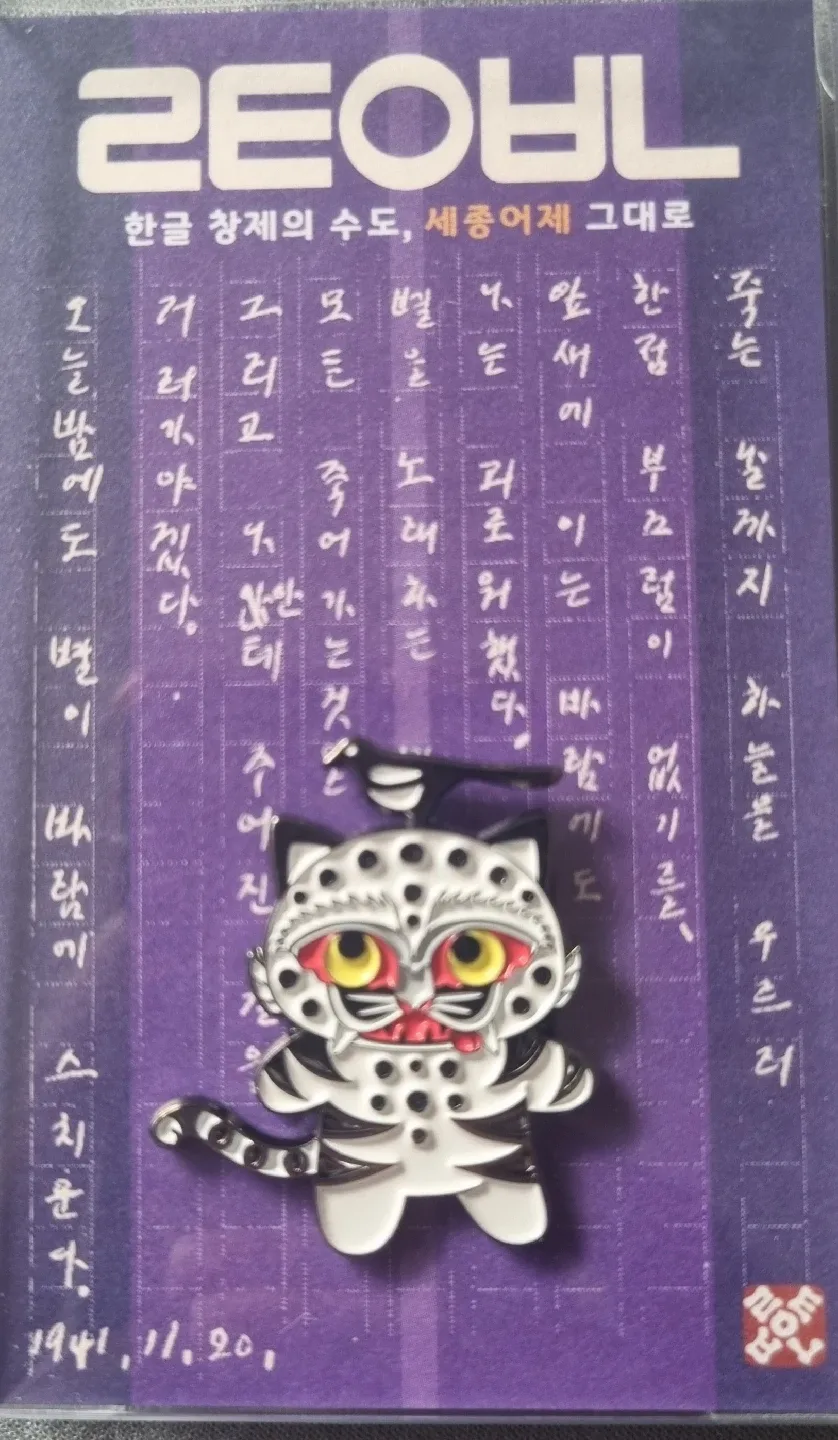 ㄹEOㅂL
한글 창제의 수도, 세종어제 그대로
죽는 날까지 하늘을 우르러
한점 부끄럼이 없기를,
잎새에 이는 바람에도
나는 괴로워했다.
별을 노래하는
모든 죽어가는것
그리고 나안테 주어진
거러가야겠다.
오늘밤에도 별이 바람에 스치운다.
1941. 11. 20.